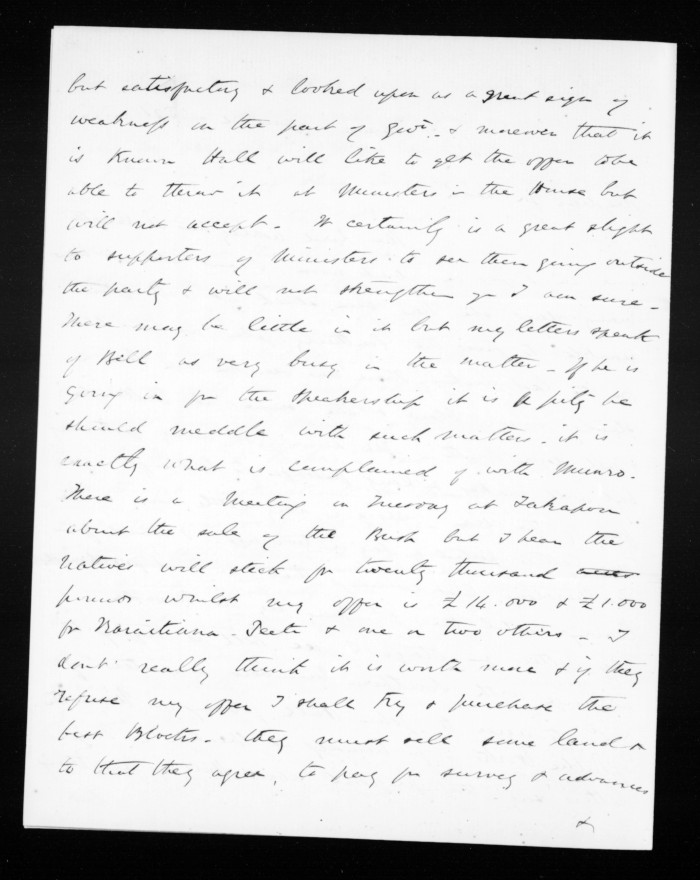 but satisfactory & looked upon as a great sign of
weakness on the part of Govt. & moreover that it
is known Hall will like to get the offer to be
able to throw it at Ministers in the House but
will not accept - It certainly is a great slight
to supporters of Ministers to see them going outside
the party & will not strengthen yr I am sure -
There may be little in it but my letters speak
of Bell as very busy in the matter - If he is
going in for the Speakership it is pity he
should meddle with such matters - it is
exactly what is complained of with Munro.
There is a Meeting on Tuesday at Takapau
about the sale of the Bush but I hear the
natives will stick for twenty thousand
pounds whilst my offer is £14.000 & £1.000
for Karaitiana - & one or two others - I
dont really think it is worth more & if they
refuse my offer I shall try & purchase the
best Blocks - they must sell some land &
to that they agree, to pay for survey & advances
&